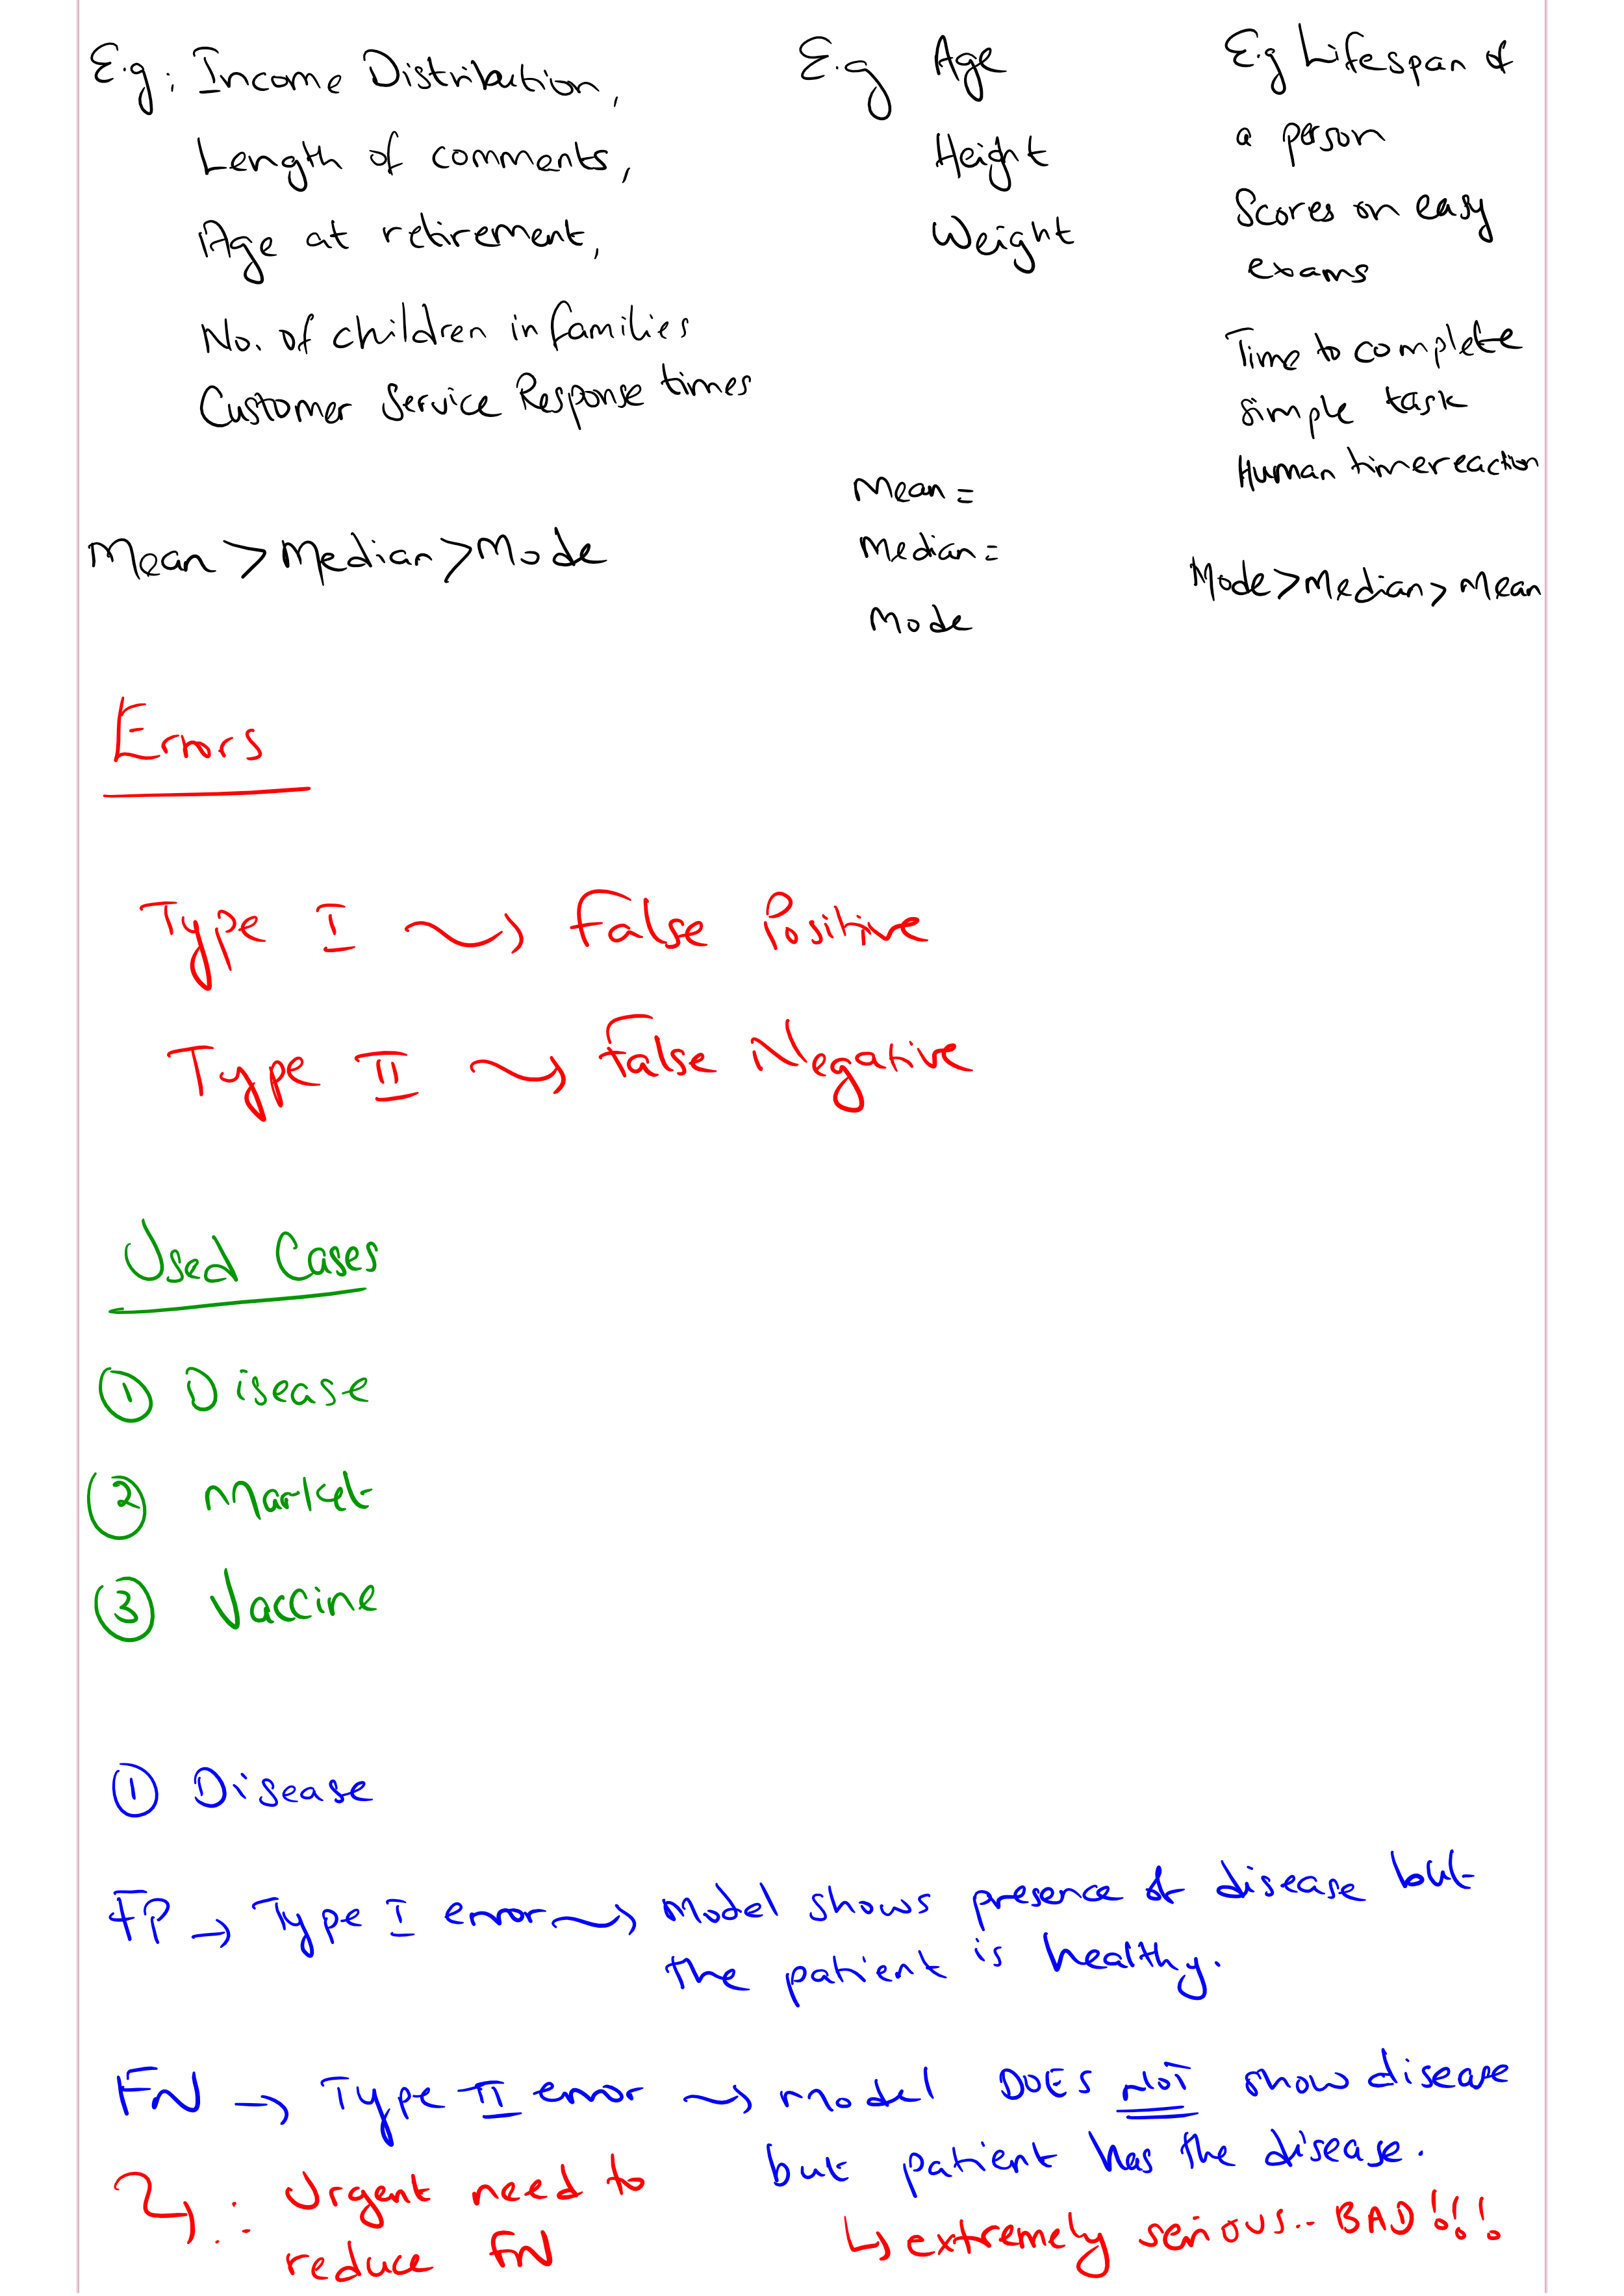 E.g: Income Distribution,
Length of comments,
Age at retirement,
No. of children in families
Customer Service Response times
Mean > Median > Mode
E.g Age
Height
Weight
Mean =
Median =
Mode
E.g Lifespan of
a person
Scores on easy
exams
Time to complete
simple task
Human time reaction
Mode > Median > Mean
Errors
Type I → False Positive
Type II → False Negative
Used Cases
① Disease
② Market
③ Vaccine
① Disease
FP → Type I error → Model shows presence of disease but
the patient is healthy.
FN → Type II error → model DOES NOT show disease
but patient has the disease.
↳ ∴ Urgent need to
reduce FN
↳ extremely serious.. BAD!!!